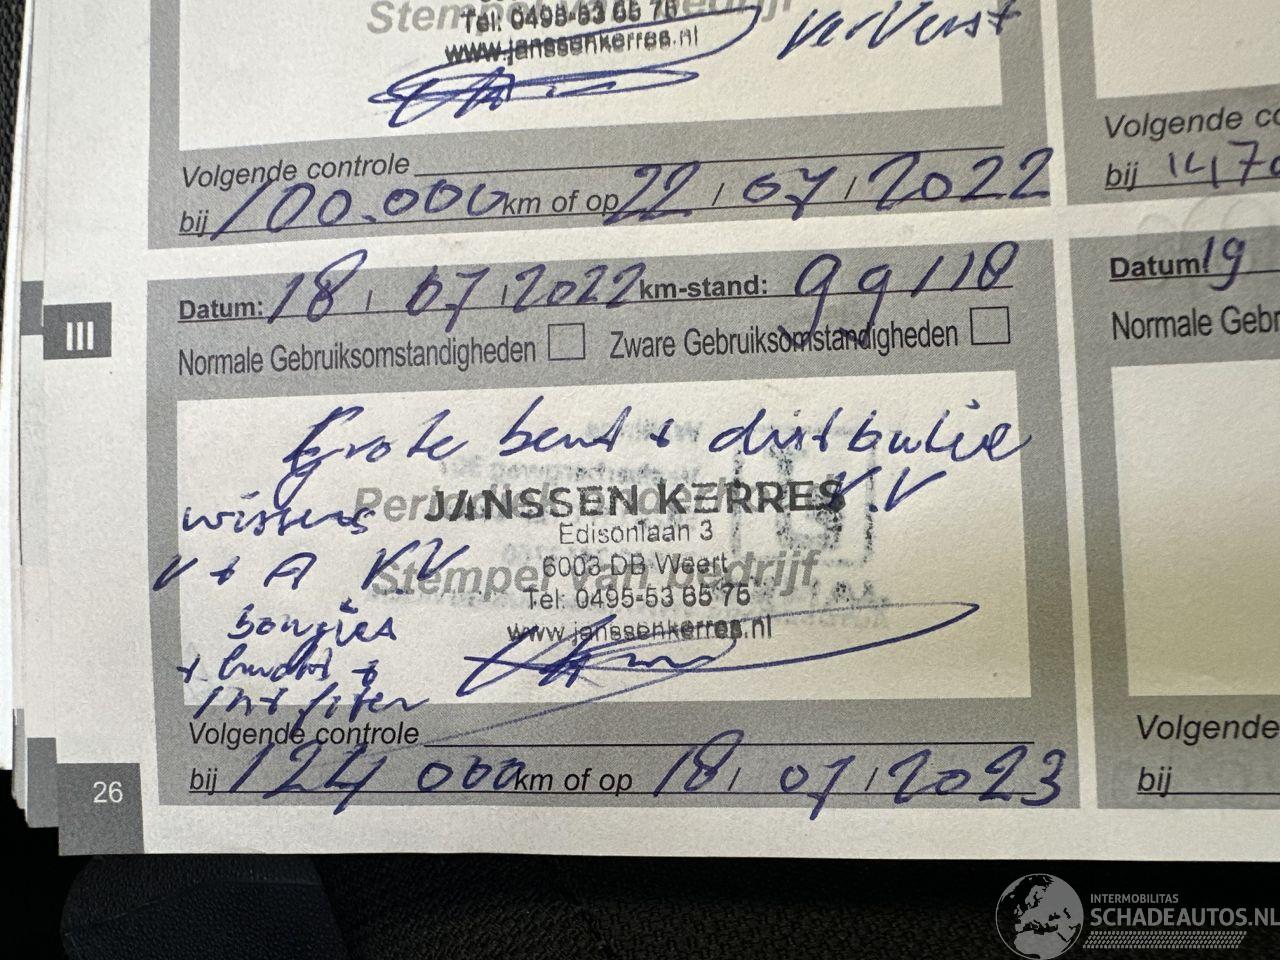 Stempel van bedrijf
Tel: 0495-53 65 75
www.janssenkerres.nl
ververst
Volgende controle
bij 100.000 km of op 22 / 07 / 2022
Datum: 18 / 07 / 2022 km-stand: 99118
Normale Gebruiksomstandigheden Zware Gebruiksomstandigheden
III
Grote beurt + distributie
wissens V.V
Periodiek onderhoud
JANSSEN KERRES
Edisonlaan 3
6003 DB Weert
Stempel van bedrijf
Tel: 0495-53 65 75
www.janssenkerres.nl
V + A V.V
bougies
+ +
int. filter
Volgende controle
bij 124 000 km of op 18 / 07 / 2023
26
Volgende
bij 1470
Datum: 19
Normale
Volgende
bij
INTERMOBILITAS
SCHADEAUTOS.NL